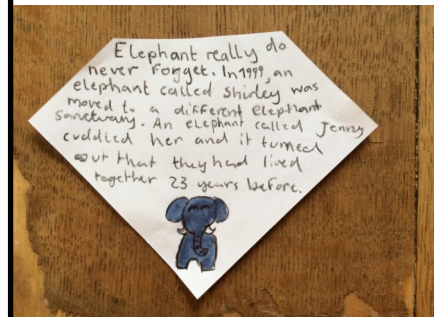 Elephant really do
never forget. In 1999, an
elephant called Shirley was
moved to a different elephant
sanctuary. An elephant called Jenny
cuddled her and it turned
out that they had lived
together 23 years before.